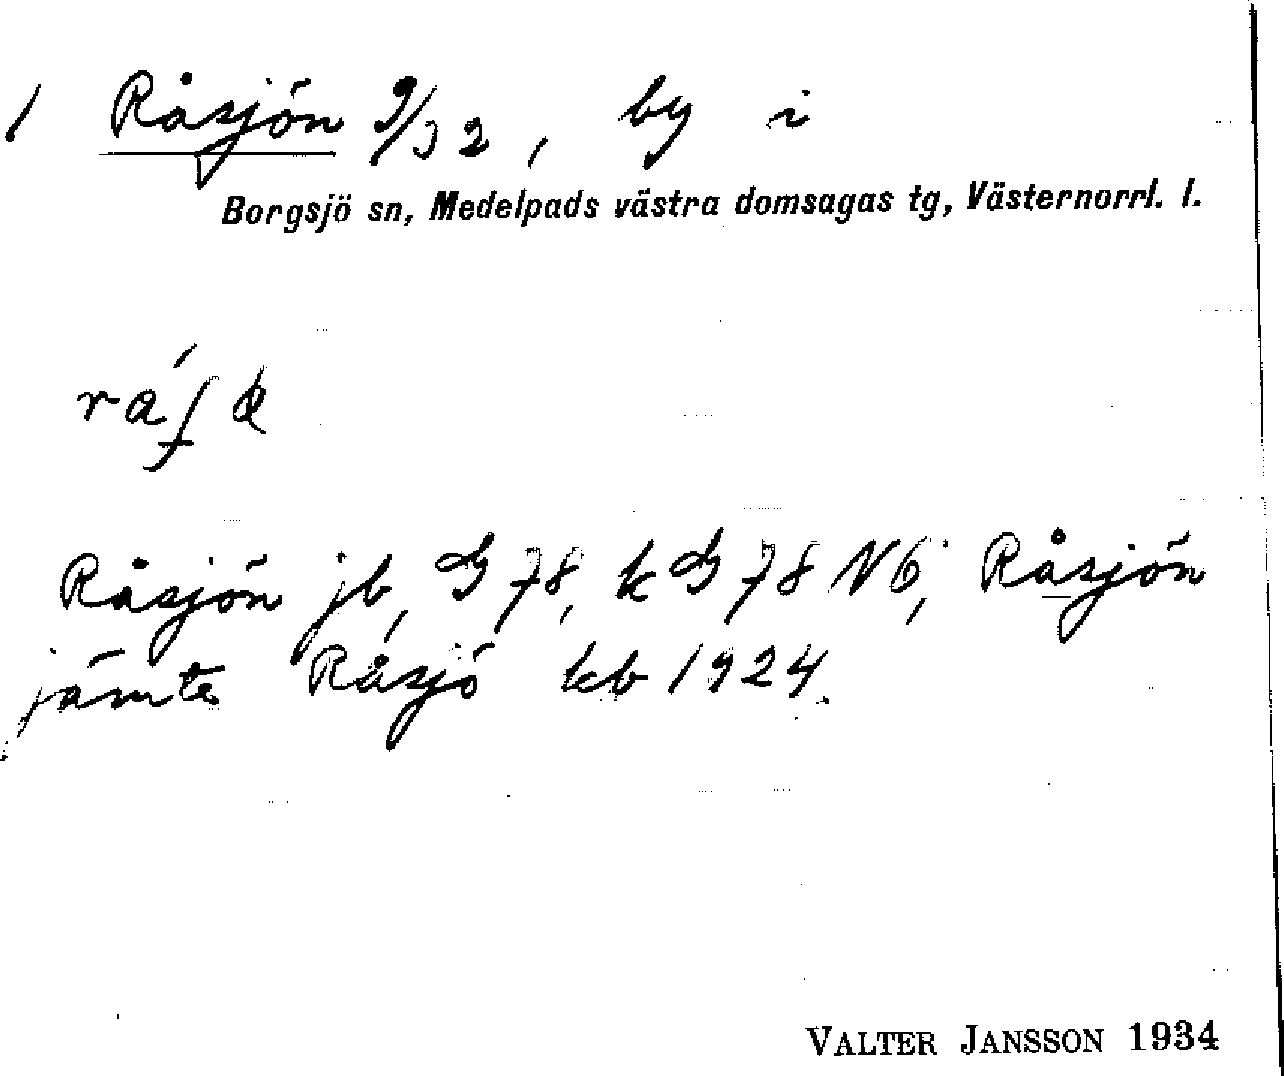 1 Råsjön 9/32, by i
Borgsjö sn, Medelpads västra domsagas tg, Västernorrl. l.
Råsjön jb, G 78, k G 78 NÖ; Råsjön
jämte Råsjö kb 1924.
VALTER JANSSON 1934